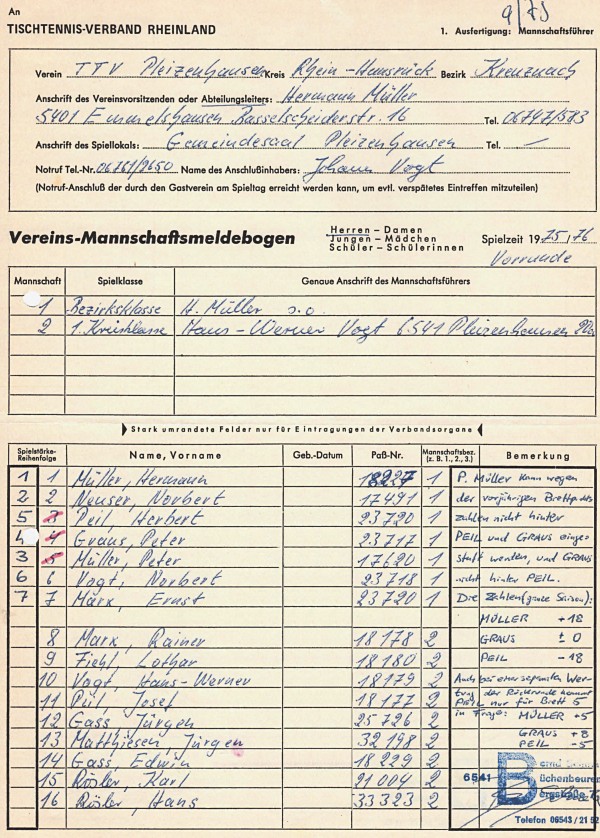 An
TISCHTENNIS-VERBAND RHEINLAND
9/75
1. Ausfertigung: Mannschaftsführer
Verein TTV Pleizenhausen Kreis Rhein-Hunsrück Bezirk Kreuznach
Anschrift des Vereinsvorsitzenden oder Abteilungsleiters: Hermann Müller
5401 Emmelshausen Basselscheiderstr. 16 Tel. 06747/573
Anschrift des Spiellokals: Gemeindesaal Pleizenhausen Tel. —
Notruf Tel.-Nr. 06761/2650 Name des Anschlußinhabers: Johann Vogt
(Notruf-Anschluß der durch den Gastverein am Spieltag erreicht werden kann, um evtl. verspätetes Eintreffen mitzuteilen)
Vereins-Mannschaftsmeldebogen
Herren – Damen
Jungen – Mädchen
Schüler – Schülerinnen
Spielzeit 1975/76
Vorrunde
Mannschaft Spielklasse Genaue Anschrift des Mannschaftsführers
1 Bezirksklasse H. Müller s.o.
2 1. Kreisklasse Hans-Werner Vogt 6541 Pleizenhausen
Stark umrandete Felder nur für Eintragungen der Verbandsorgane
Spielstärke-Reihenfolge Name, Vorname Geb.-Datum Paß-Nr. Mannschaftsbez. (z. B. 1., 2., 3.) Bemerkung
1 1 Müller, Hermann 18227 1 P. Müller kann wegen
2 2 Neuser, Norbert 17491 1 der vorjährigen Brettpunkt
5 3 Peil, Herbert 23720 1 zahlen nicht hinter
4 4 Graus, Peter 23717 1 PEIL und GRAUS einge-
3 5 Müller, Peter 17620 1 stuft werden, und GRAUS
6 6 Vogt, Norbert 23718 1 nicht hinter PEIL.
7 7 Marx, Ernst 23720 1 Die Zahlen (ganze Saison):
MÜLLER +18
8 Marx, Rainer 18178 2 GRAUS ± 0
9 Fiehl, Lothar 18180 2 PEIL -18
10 Vogt, Hans-Werner 18179 2 Auch bei einer separaten Wer-
11 Peil, Josef 18177 2 tung der Rückrunde kommt
PEIL nur für Brett 5
12 Gass, Jürgen 25726 2 in Frage: MÜLLER +5
13 Matthiesen, Jürgen 32198 2 GRAUS +8
PEIL -5
14 Gass, Edwin 18229 2
15 Rösler, Karl 21004 2 6541 Büchenbeuren
16 Rösler, Hans 33323 2
Telefon 06543 / 21 52